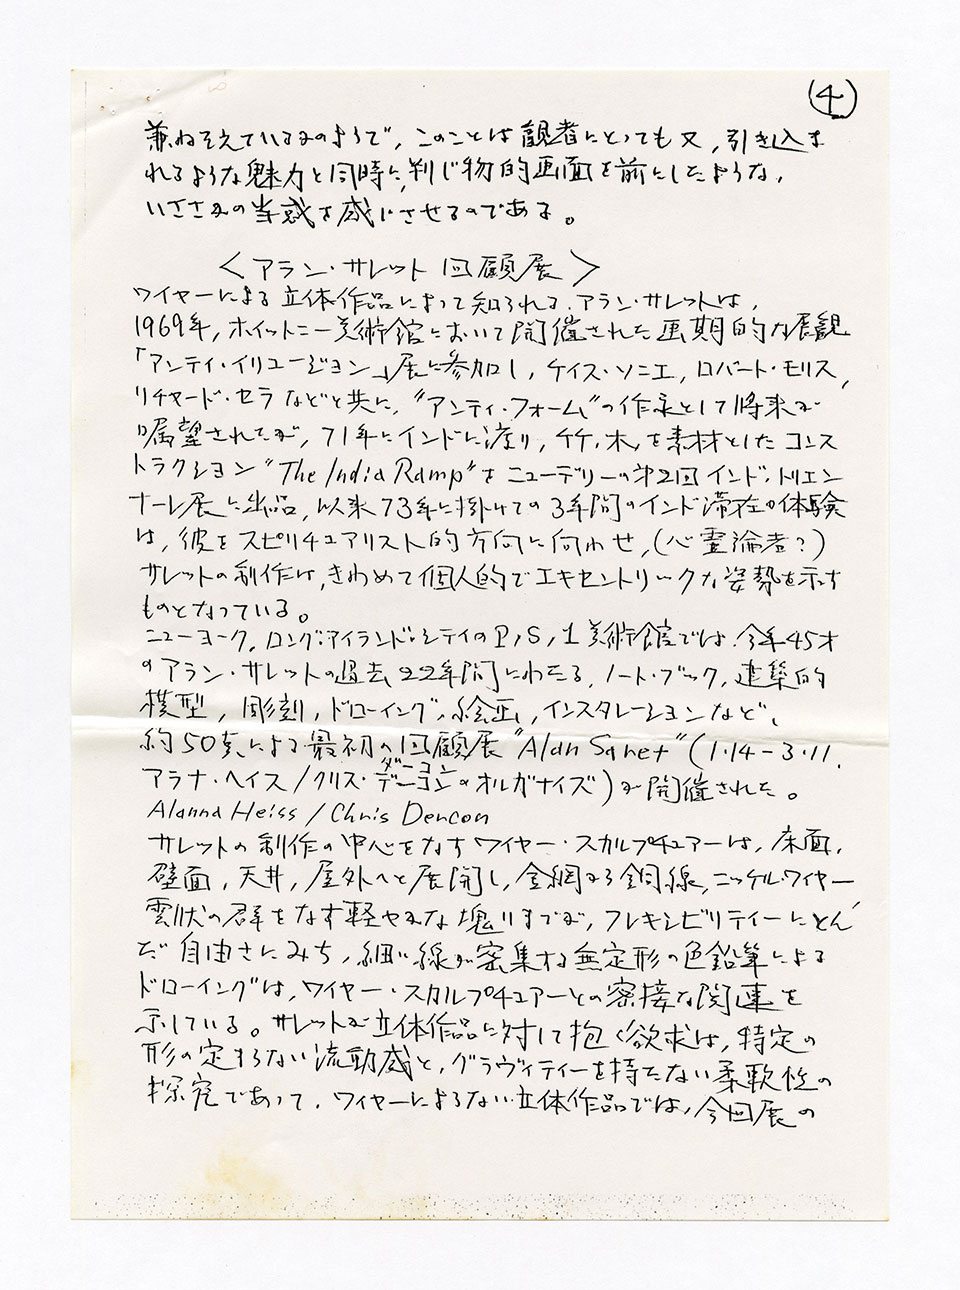 (4)
兼ねそえているかのようで、このことは観者にとっても又、引き込ま
れるような魅力と同時に、判じ物的画面を前にしたような、
いささかの当惑を感じさせるのである。
〈アラン・サレット回顧展〉
ワイヤーによる立体作品によって知られる、アラン・サレットは、
1969年、ホイットニー美術館において開催された画期的な展観
「アンティ・イリュージョン」展に参加し、ケイス・ソニエ、ロバート・モリス、
リチャード・セラなどと共に、"アンティ・フォーム"の作家として将来が
嘱望されたが、71年にインドに渡り、竹、木、を素材としたコンス
トラクション"The India Ramp"をニューデリーの第2回インド・トリエン
ナーレ展に出品、以来73年に掛けての3年間のインド滞在の体験
は、彼をスピリチュアリスト的方向に向わせ、(心霊論者?)
サレットの制作は、きわめて個人的でエキセントリックな姿勢を示す
ものとなっている。
ニューヨーク、ロング・アイランド・シティのP,S,1美術館では、今年45才
のアラン・サレットの過去22年間にわたる、ノート・ブック、建築的
模型、彫刻、ドローイング、絵画、インスタレーションなど、
約50点による最初の回顧展"Alan Saret"(1・14-3・11.
ダーコン
アラナ・ヘイス/クリス・デーコンのオルガナイズ)が開催された。
Alanna Heiss / Chris Dercon
サレットの制作の中心をなすワイヤー・スカルプチュアーは、床面、
壁面、天井、屋外へと展開し、金網から銅線、ニッケル・ワイヤー
雲状の群をなす軽やかな塊りまでが、フレキシビリティーにとん
だ自由さにみち、細い線が密集する無定形の色鉛筆による
ドローイングは、ワイヤー・スカルプチュアーとの密接な関連を
示している。サレットが立体作品に対して抱く欲求は、特定の
形の定まらない流動感と、グラヴィティーを持たない柔軟性の
探究であって、ワイヤーによらない立体作品では、今回展の